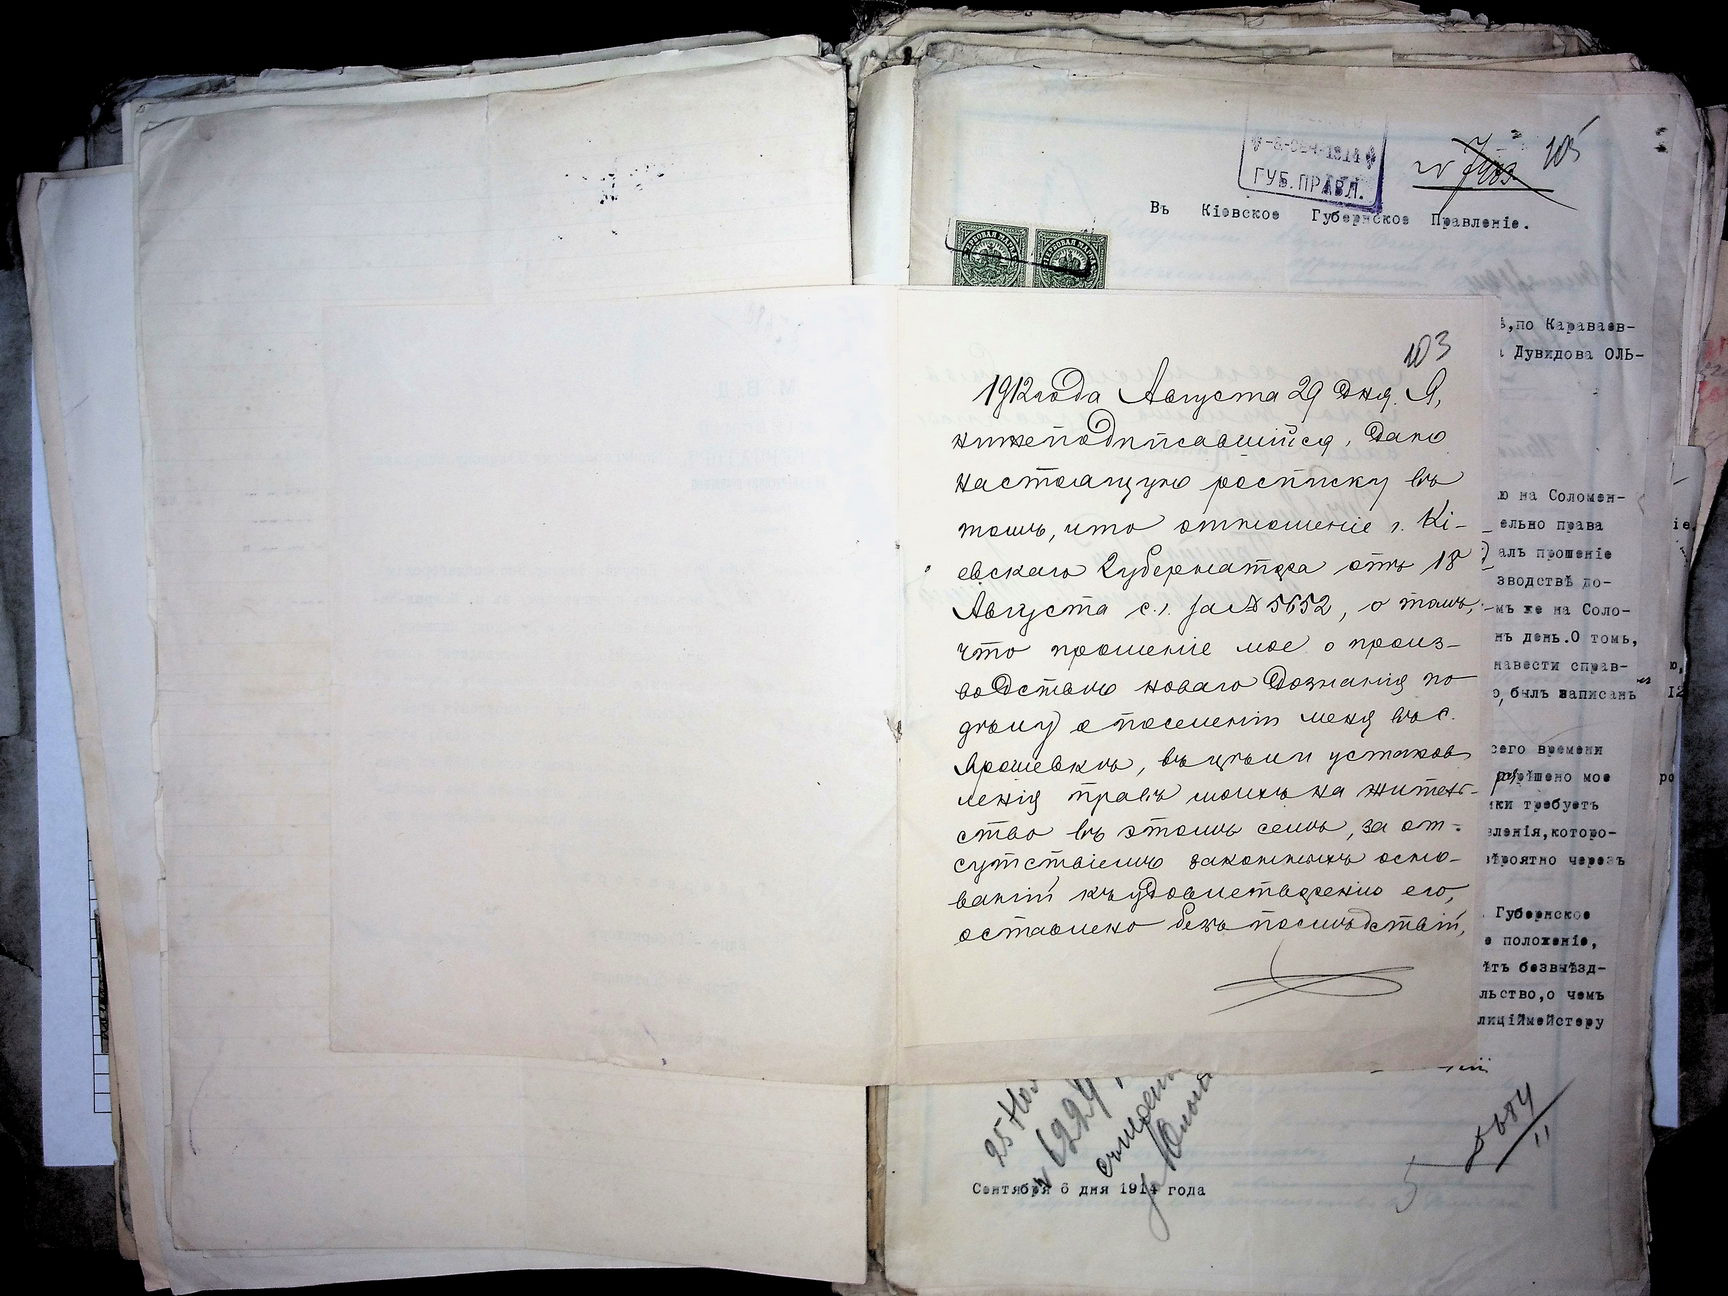 -8-СЕН-1914
ГУБ.ПРАВЛ.
105
Въ Кіевское Губернское Правленіе.
,по Караваев-
Дувидова ОЛЬ-
ю на Соломен-
ельно права
алъ прошеніе
зводствѣ до-
мъ же на Соло-
нъ день.О томъ,
навести справ-
о,былъ написанъ
сего времени
рѣшено мое
ики требуетъ
вленія,которо-
вѣроятно черезъ
Губернское
е положеніе,
ѣть безвыѣзд-
льство,о чемъ
лиціймейстеру
103
1912 года Августа 29 дня. Я,
нижеподписавшійся, даю
настоящую росписку въ
томъ, что отношеніе г. Кі-
евскаго Губернатора отъ 18
Августа с.г. за № 5652, о томъ,
что прошеніе мое о произ-
водствѣ новаго дознанія по
дѣлу о поселеніи меня въ с.
Ярошевкѣ, въ цѣли установ
ленія правъ моихъ на житель-
ство въ этомъ селѣ, за от-
сутствіемъ законныхъ осно-
ваній къ удовлетворенію его,
оставлено безъ послѣдствій,
25
Сентября 6 дня 1914 года
5684
11
5